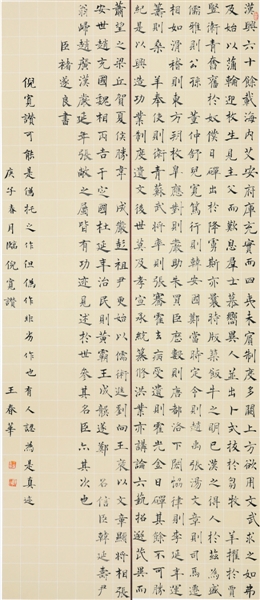 漢興六十餘載海内艾安府庫充實而四夷未賓制度多闕上方欲用文武求之如弗
及始以蒲輪迎枚生見主父而歎息羣士慕嚮異人並出卜式拔於芻牧 羊擢於賈
豎衛青奮於奴僕日磾出於降虜斯亦曩時版築飯牛之朋已漢之得人於茲為盛
儒雅則公孫 董仲舒兒寬篤行則韓安國鄭當時定令則趙禹張湯文章則司馬遷
相如滑稽則東方朔枚皋應對則嚴助朱買臣曆數則唐都洛下閎協律則李延年運
籌則桑 羊奉使則張騫蘇武將率則衛青霍去病受遺則霍光金日磾其餘不可勝
紀是以興造功業制度遺文後世莫及孝宣承統纂修洪業亦講論六藝招選茂異而
蕭望之梁丘賀夏侯勝韋 成嚴彭祖尹更始以儒術進劉向王襃以文章顯將相張
安世趙充國魏相邴吉于定國杜延年治民則黃霸王成龔遂鄭 召信臣韓延壽尹
翁歸趙廣漢嚴延年張敞之屬皆有功迹見述於世參其名臣亦其次也
臣褚遂良書
倪寬讚可能是偽托之作但偽作非劣作也有人認為是真迹
庚子春月臨倪寬讚 王春華